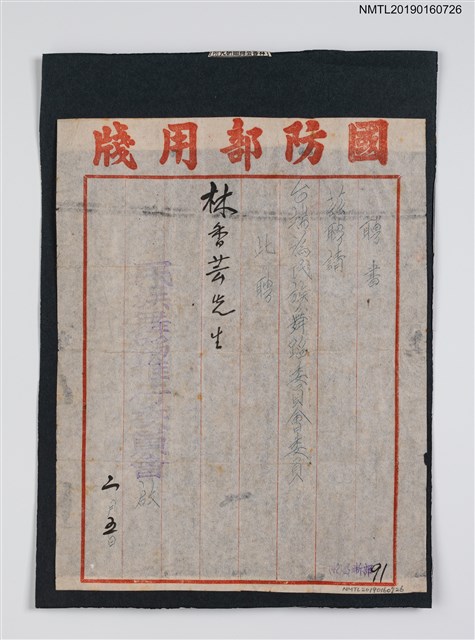 NMTL20190160726
國防部用牋
聘書
茲聘請
台端為民族舞蹈委員會委員
此聘
林香芸先生
啟
二月五日
91
NMTL20190160726